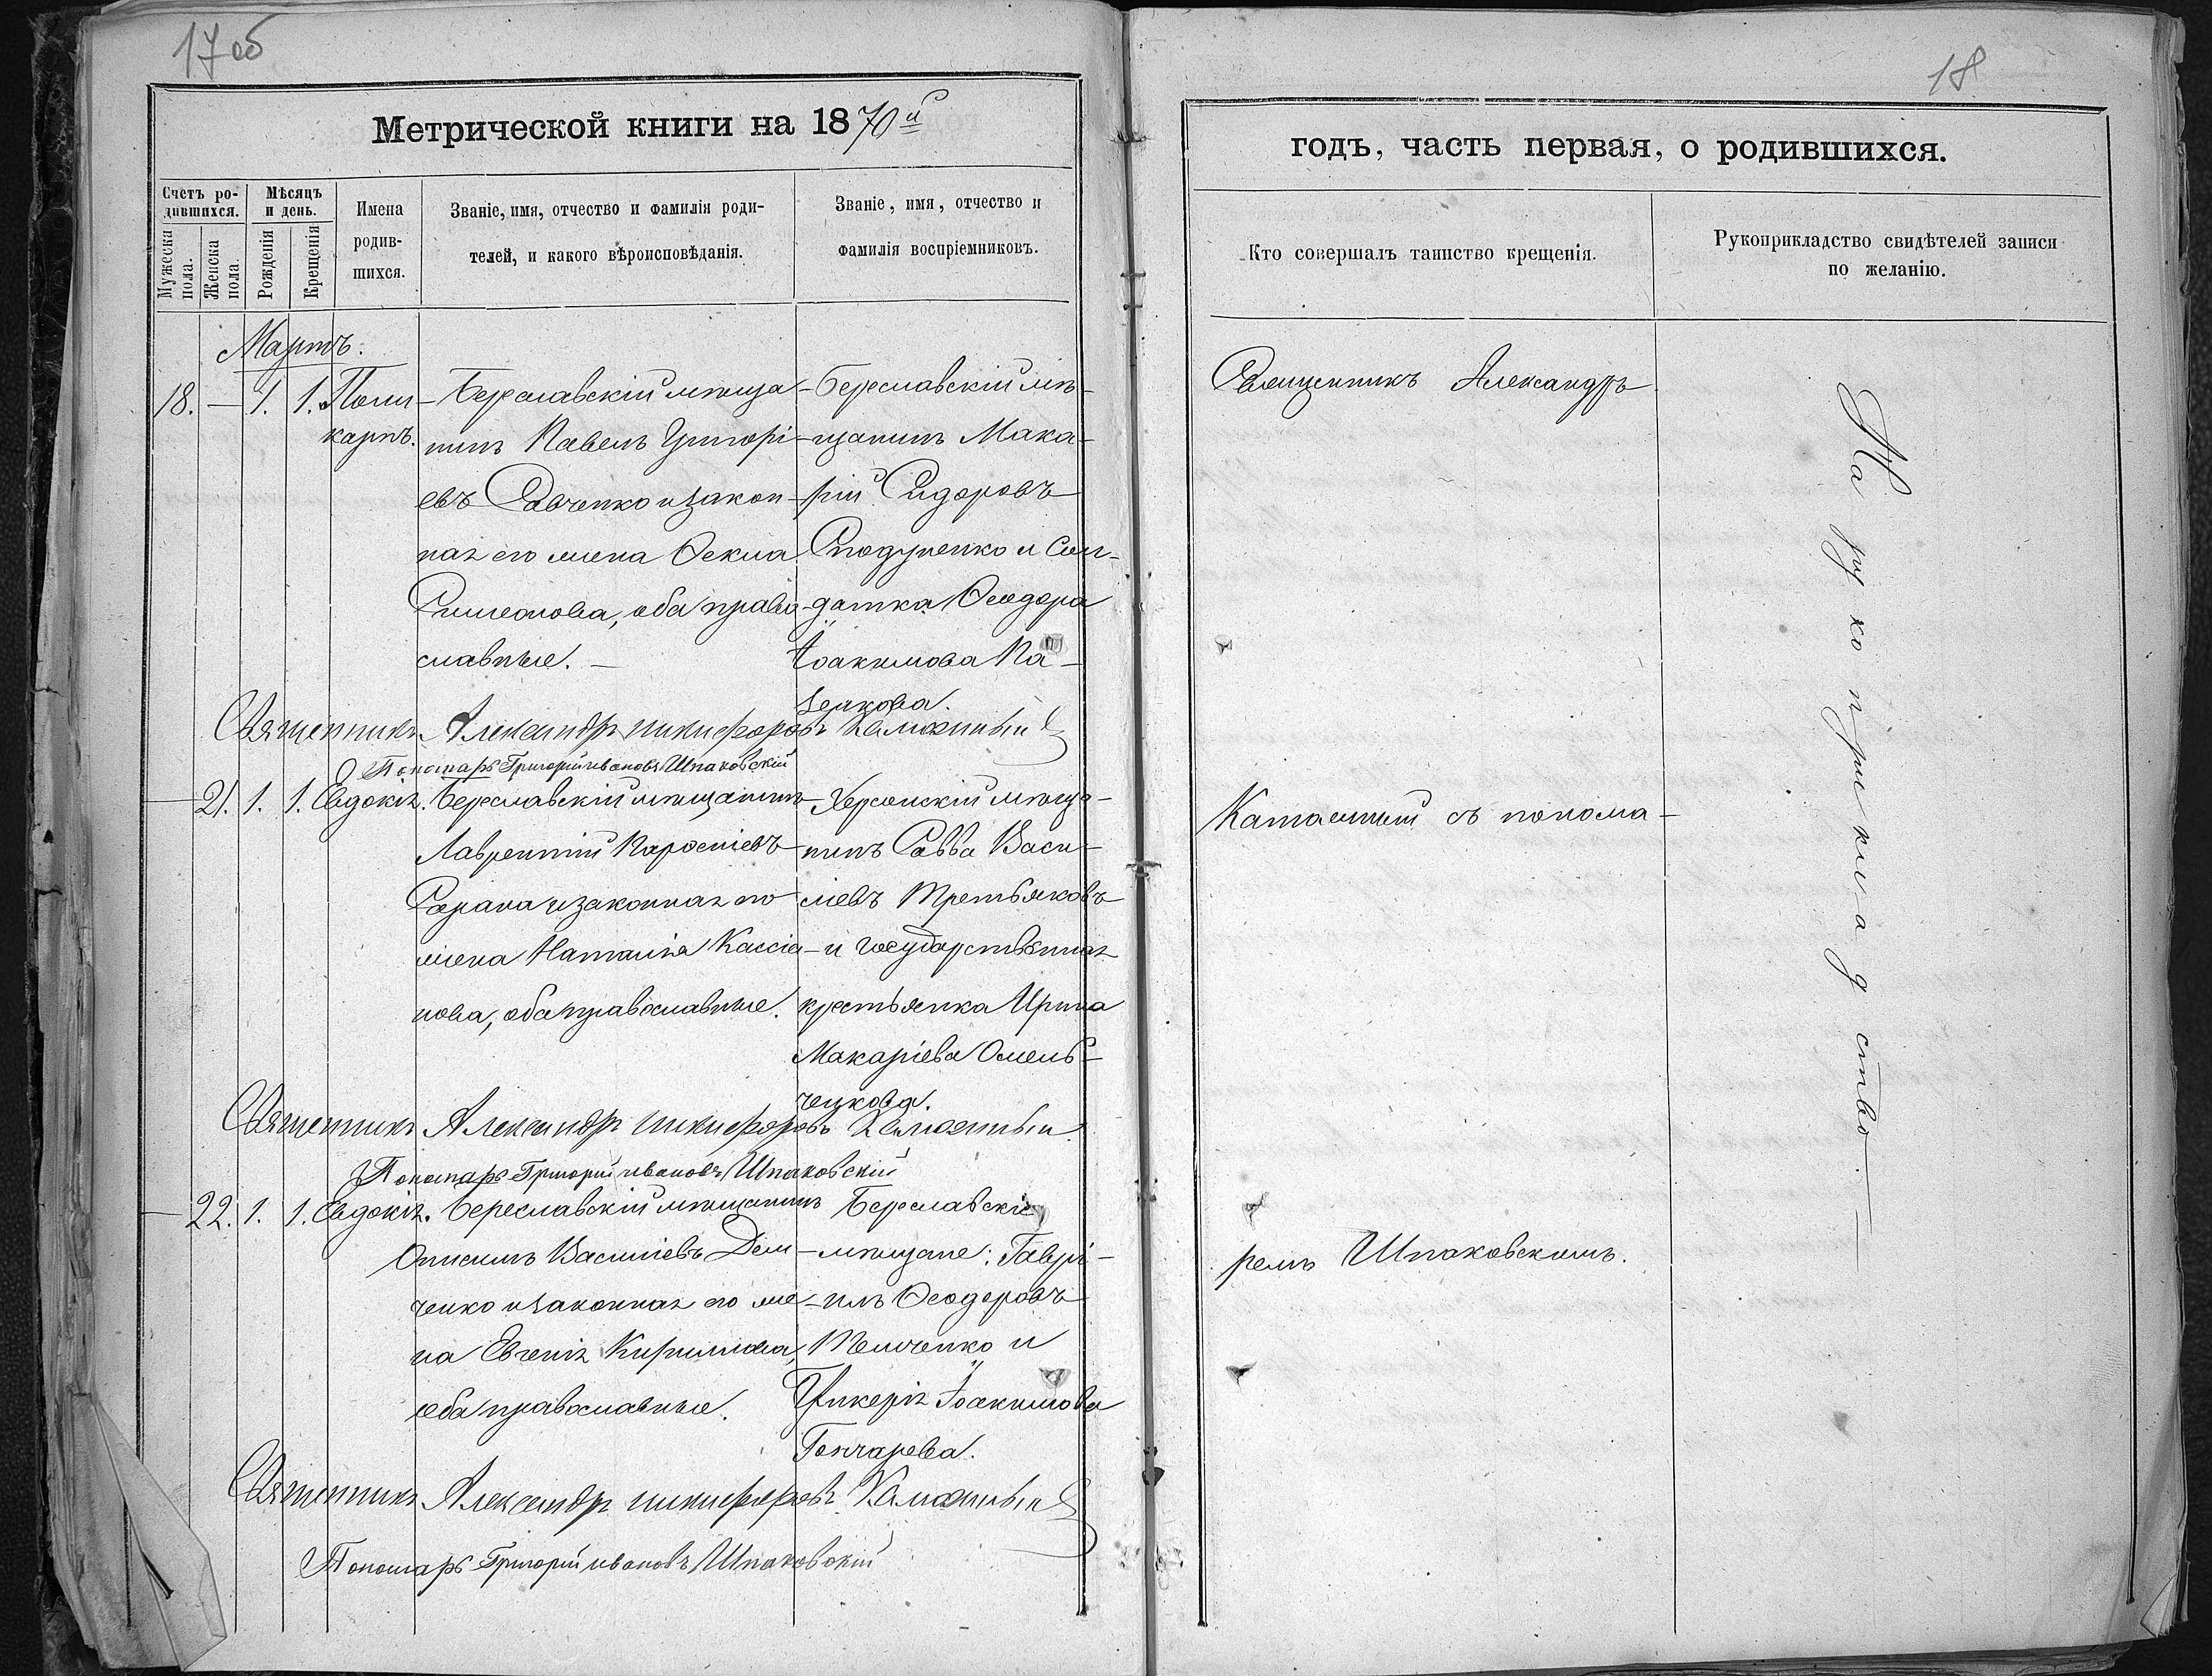 17об
Метрической книги на 1870й
Счетъ ро-
дившихся.
Мужеска пола.
Женска пола.
Мѣсяцъ
и день.
Рожденія
Крещенія
Имена
родив-
шихся.
Званіе, имя, отчество и фамилія роди-
телей, и какого вѣроисповѣданія.
Званіе, имя, отчество и
фамилія воспріемниковъ.
Мартъ.
18. — 1. 1. Поли-
карпъ.
Береславскій мѣща-
нинъ Павелъ Григорі-
евъ Савченко и закон-
ная его жена Ѳекла
Симеонова, оба право-
славные. —
Береславскій мѣ-
щанинъ Мака-
рій Сидоровъ
и Сол-
датка Ѳеодора
Іоакимова Ка-
закова.
Священникъ Александръ Никифоровъ
Пономарь Григорій Ивановъ Шпаковскій
— 21. 1. 1. Евдокія.
Береславскій мѣщанинъ
Лаврентій
и законная его
жена Наталія Кассіа-
нова, оба православные.
Херсонскій мѣща-
нинъ Савва Васи-
ліевъ Третьяковъ
и государственная
крестьянка Ирина
Макаріева Омель-
ченкова.
Священникъ Александръ Никифоровъ
Пономарь Григорій Ивановъ Шпаковскій
— 22. 1. 1. Евдокія.
Береславскій мѣщанинъ
Онисимъ Василіевъ Дем-
ченко и законная его же-
на Евгенія Кириллова,
оба православные.
Береславскіе
мѣщане: Гаврі-
илъ Ѳеодоровъ
и
Гликерія Іоакимова
Гончарева.
Священникъ Александръ Никифоровъ
Пономарь Григорій Ивановъ Шпаковскій
18
годъ, часть первая, о родившихся.
Кто совершалъ таинство крещенія.
Рукоприкладство свидѣтелей записи
по желанію.
Священникъ Александръ
съ понома-
ремъ Шпаковскимъ.
рукоприкладство